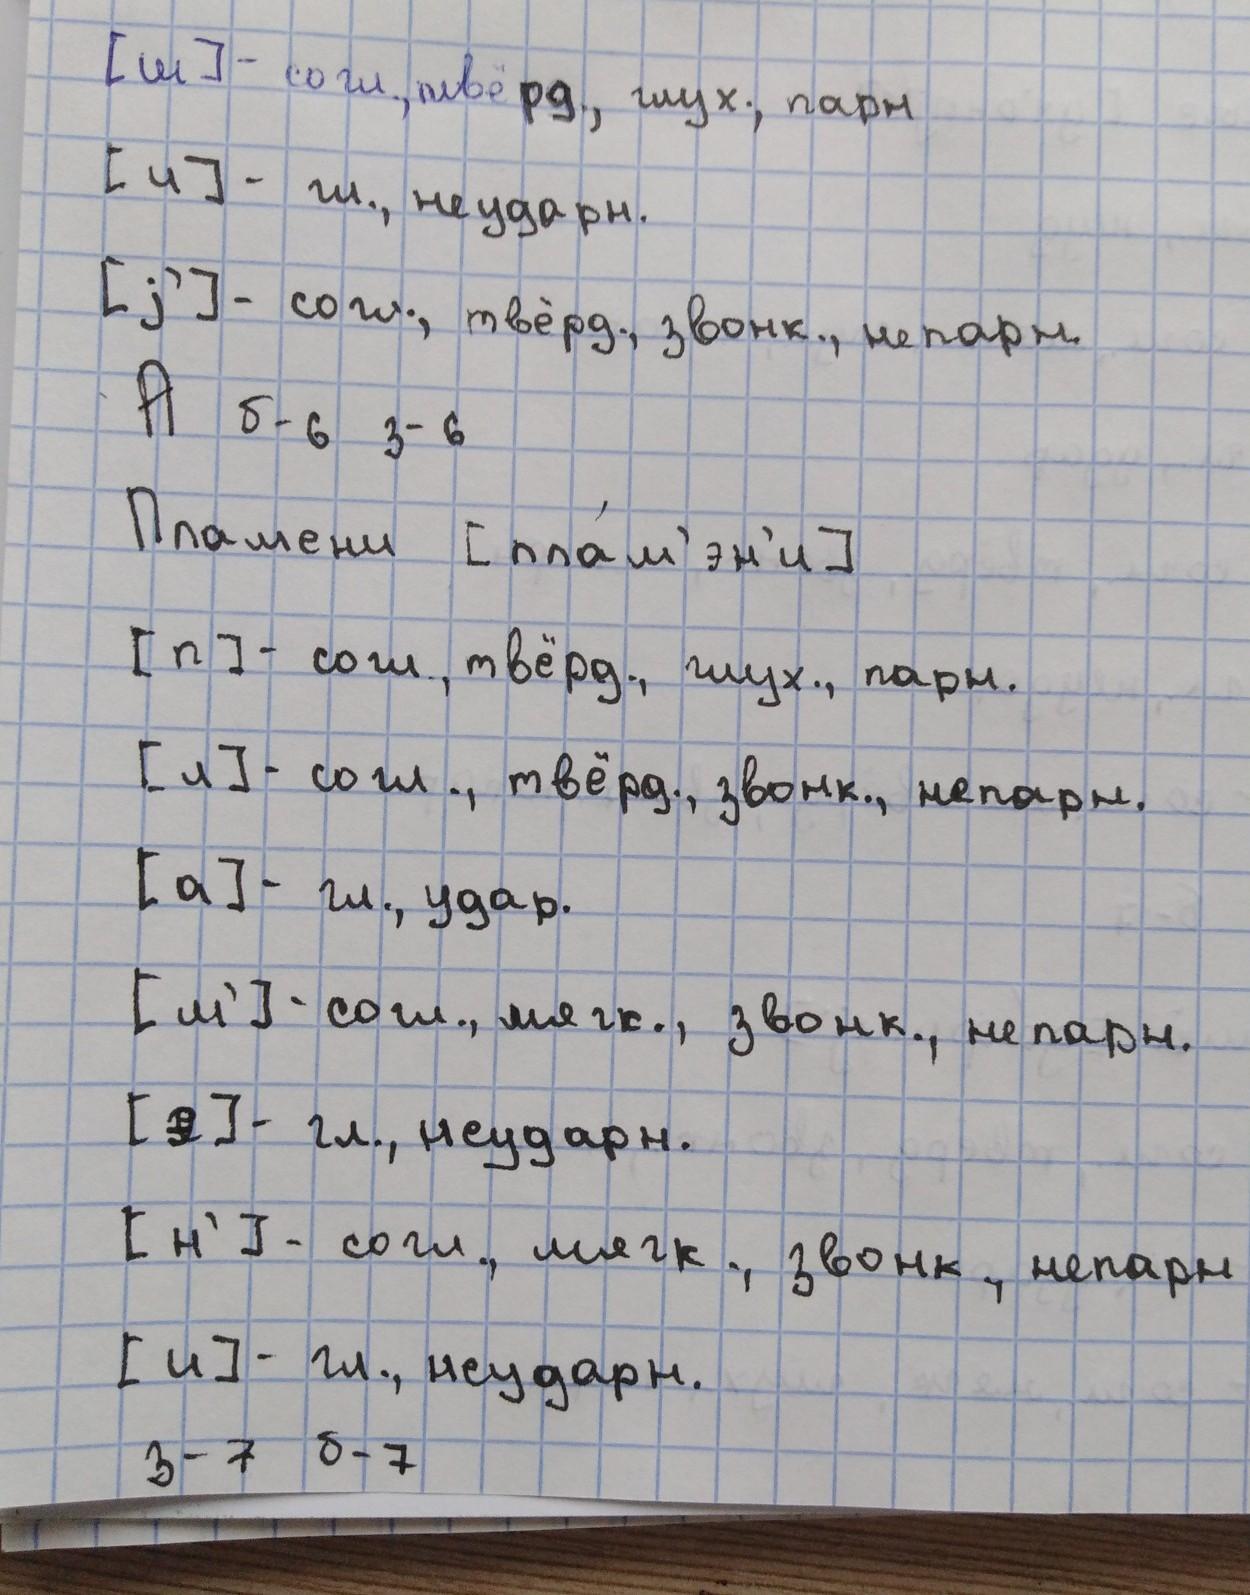 [ш]- согл., твёрд., глух., парн
[и]- гл., неударн.
[j']- согл., твёрд., звонк., непарн.
А б-6 з-6
Пламени [пла́м'эн'и]
[п]- согл., твёрд., глух., парн.
[л]- согл., твёрд., звонк., непарн.
[а]- гл., удар.
[м']- согл., мягк., звонк., непарн.
[э]- гл., неударн.
[н']- согл., мягк., звонк., непарн
[и]- гл., неударн.
з-7 б-7